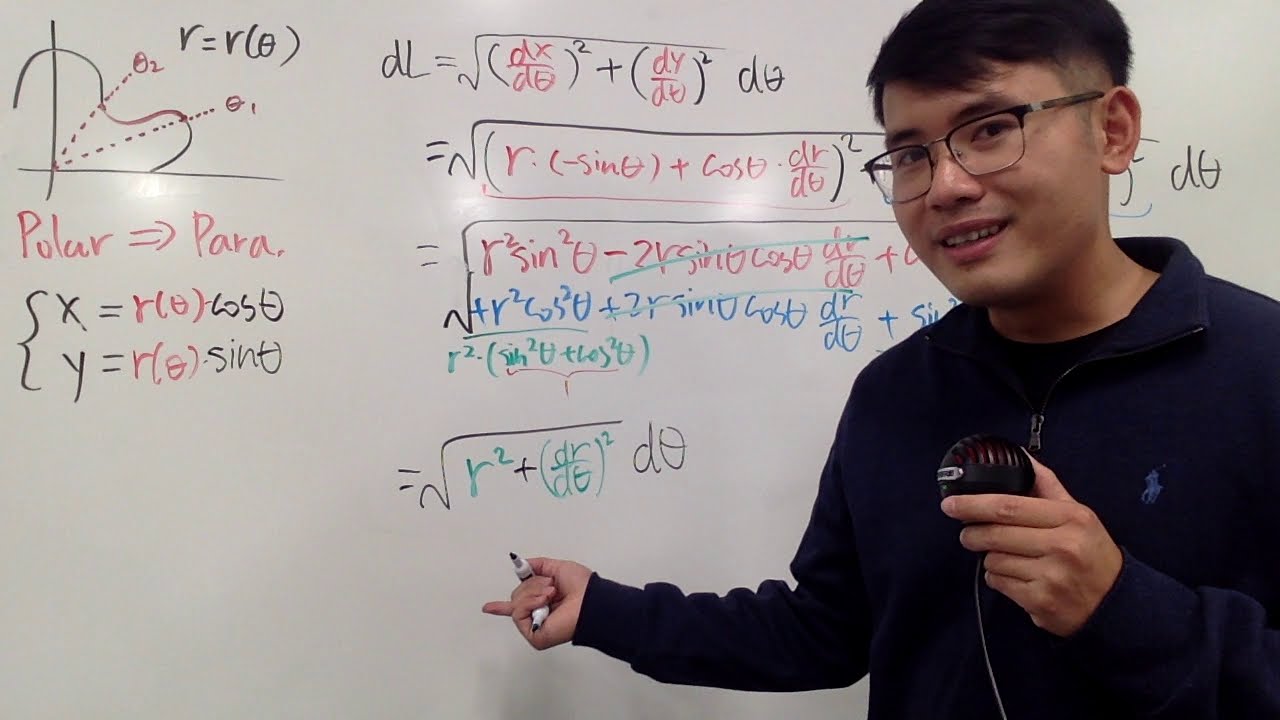 r = r(θ)
θ₂
θ₁
Polar ⇒ Para.
{ x = r(θ)·cosθ
y = r(θ)·sinθ
dL = √((dx/dθ)² + (dy/dθ)²) dθ
= √((r·(-sinθ) + cosθ·dr/dθ)² dθ
= √(r²sin²θ - 2r sinθ cosθ dr/dθ +
+ r²cos²θ + 2r sinθ cosθ dr/dθ +
r²·(sin²θ + cos²θ)
1
= √(r² + (dr/dθ)²) dθ